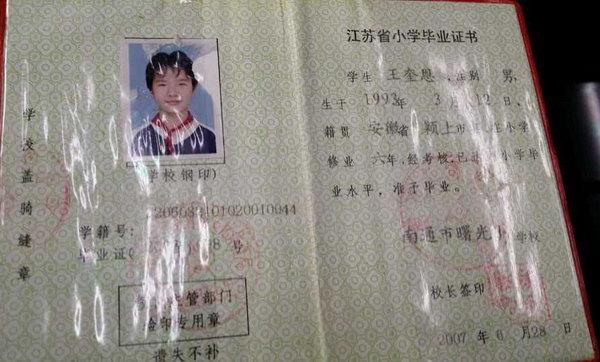 学校盖骑缝章
(学校钢印)
学籍号:
毕业证( 8 号
管部门
验印专用章
遗失不补
江苏省小学毕业证书
学生 王奎恩 ,性别 男,
生于 1993年 3月 12日,
籍贯 安徽省 颍上市 在小学
修业 六年,经考核,已 小学毕
业水平,准予毕业。
南通市曙光小 学校
校长签印
2007 年 6 月28 日